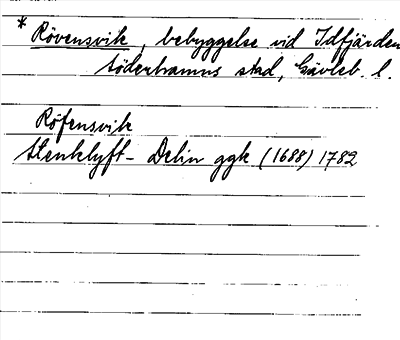 * Rövensvik, bebyggelse vid Idfjärden
Söderhamns stad, Gävleb. l.
Röfensvik
Stenklyft- Delin ggk (1688) 1782